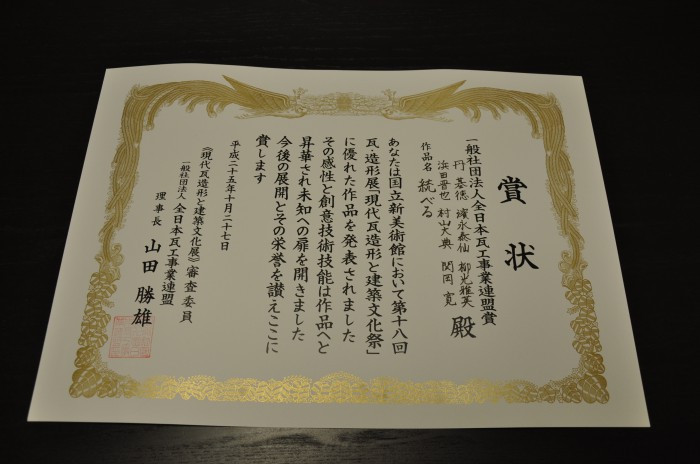 賞状
一般社団法人全日本瓦工事業連盟賞
丹 基徳 濱永泰仙 柳光雅英
浜田晋也 村山大典 関岡 寛
殿
作品名 統べる
あなたは国立新美術館において第十八回
瓦・造形展「現代瓦造形と建築文化祭」
に優れた作品を発表されました
その感性と創意技術技能は作品へと
昇華され未知への扉を開きました
今後の展開とその栄誉を讃えここに
賞します
平成二十五年十月二十七日
《現代瓦造形と建築文化展》審査委員
一般社団法人 全日本瓦工事業連盟
理事長 山田勝雄